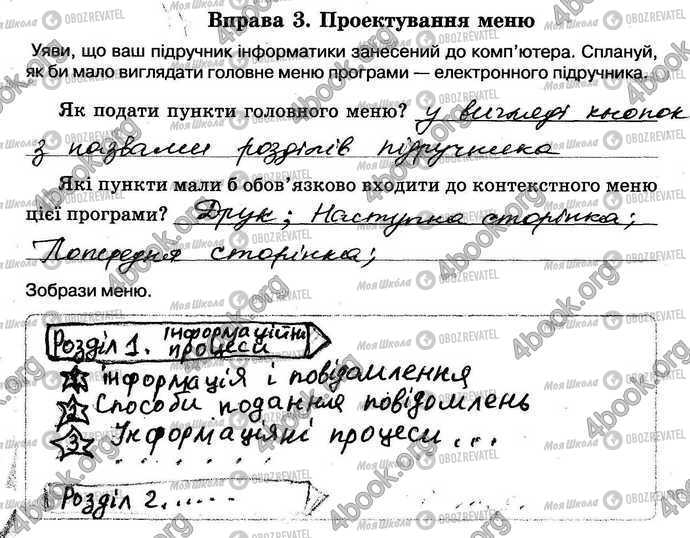 Вправа 3. Проектування меню
Уяви, що ваш підручник інформатики занесений до комп'ютера. Сплануй,
як би мало виглядати головне меню програми — електронного підручника.
Як подати пункти головного меню? у вигляді кнопок
з назвами розділів підручника
Які пункти мали б обов'язково входити до контекстного меню
цієї програми? Друк; Наступна сторінка;
Попередня сторінка;
Зобрази меню.
Розділ 1. Інформаційні
процеси
1 Інформація і повідомлення
2 Способи подання повідомлень
3 Інформаційні процеси...
Розділ 2. .....